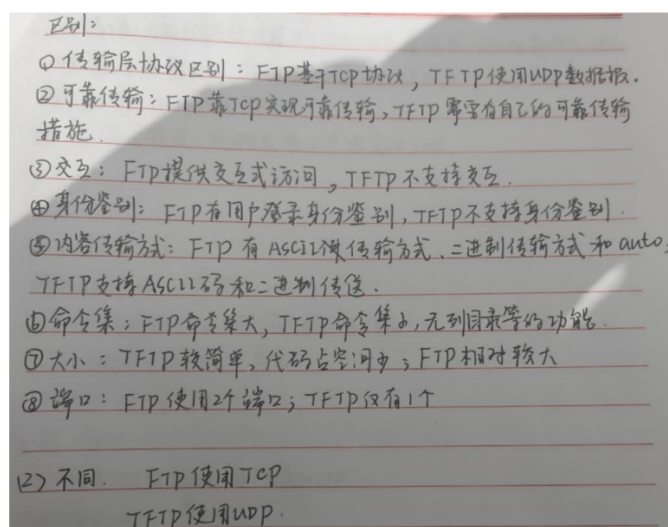 区别：
① 传输层协议区别：FTP基于TCP协议，TFTP使用UDP数据报．
② 可靠传输：FTP靠TCP实现可靠传输，TFTP需要有自己的可靠传输
措施．
③ 交互：FTP提供交互式访问，TFTP不支持交互．
④ 身份鉴别：FTP有用户登录身份鉴别，TFTP不支持身份鉴别．
⑤ 内容传输方式：FTP有ASCII传输方式、二进制传输方式和auto，
TFTP支持ASCII码和二进制传送．
⑥ 命令集：FTP命令集大，TFTP命令集小，无列目录等的功能．
⑦ 大小：TFTP较简单，代码占空间少；FTP相对较大
⑧ 端口：FTP使用2个端口；TFTP仅有1个
(2) 不同． FTP使用TCP
TFTP使用UDP．